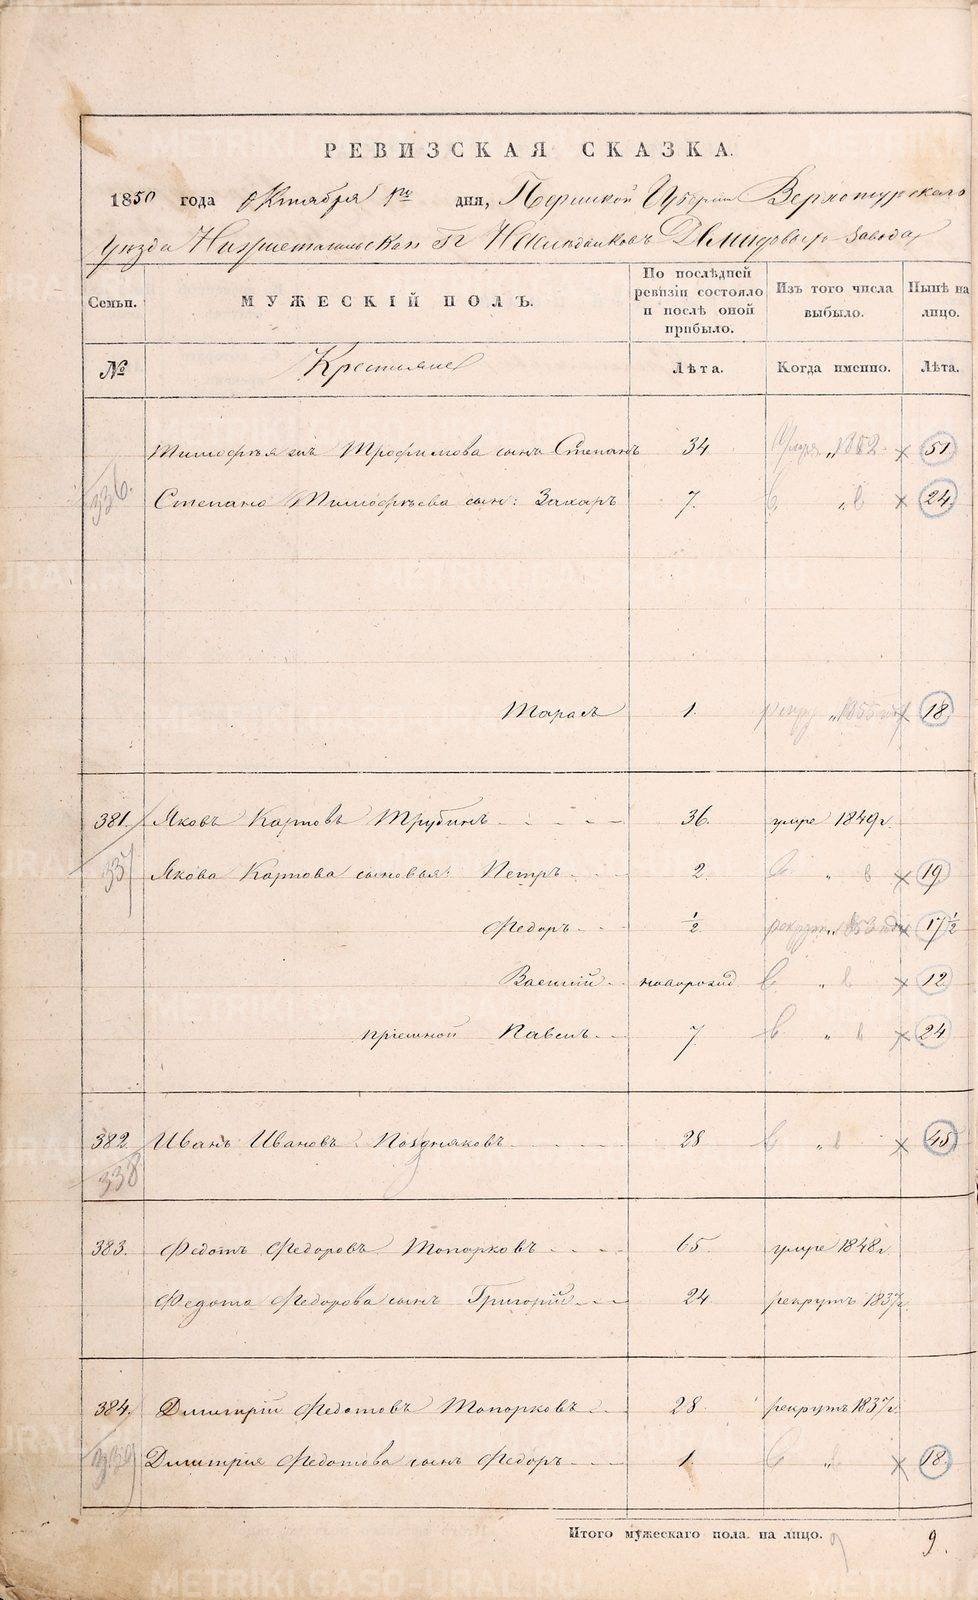 РЕВИЗСКАЯ СКАЗКА.
1850 года Октября дня, Пермской Губернии Верхотурского
уезда Нижнетагильскаго Гг Демидовыхъ завода
Семьи. МУЖЕСКІЙ ПОЛЪ. По послѣдней ревизіи состояло и послѣ оной прибыло. Изъ того числа выбыло. Нынѣ на лицо.
№ Крестьяне Лѣта. Когда именно. Лѣта.
Тимофея Трофимова сынъ Степанъ 34 1852 × 51
336. Степана Тимофѣева сын: Захаръ 7. в „ в × 24
Тарасъ 1. рекру „ 1855 × 18
381. Яковъ Карповъ Трубинъ 36. умре 1849 г.
337 Якова Карпова сыновья: Петръ 2. в „ в × 19
Федоръ 1/2 рекрут „ 1853 × 17 1/2
Василій новорожд. в „ в × 12
пріемной Павелъ 7 в „ в × 24
382. Иванъ Ивановъ Поздняковъ 28 в „ в × 45
338
383. Федотъ Федоровъ Топорковъ 65. умре 1848 г.
Федота Федорова сынъ Григорій 24 рекрутъ 1837 г.
384. Дмитрій Федотовъ Топорковъ 28. рекрутъ 1837 г.
339 Дмитрія Федотова сынъ Федоръ 1. в „ в × 18
Итого мужескаго пола на лицо. 9 9.
METRIKI.GASO-URAL.RU